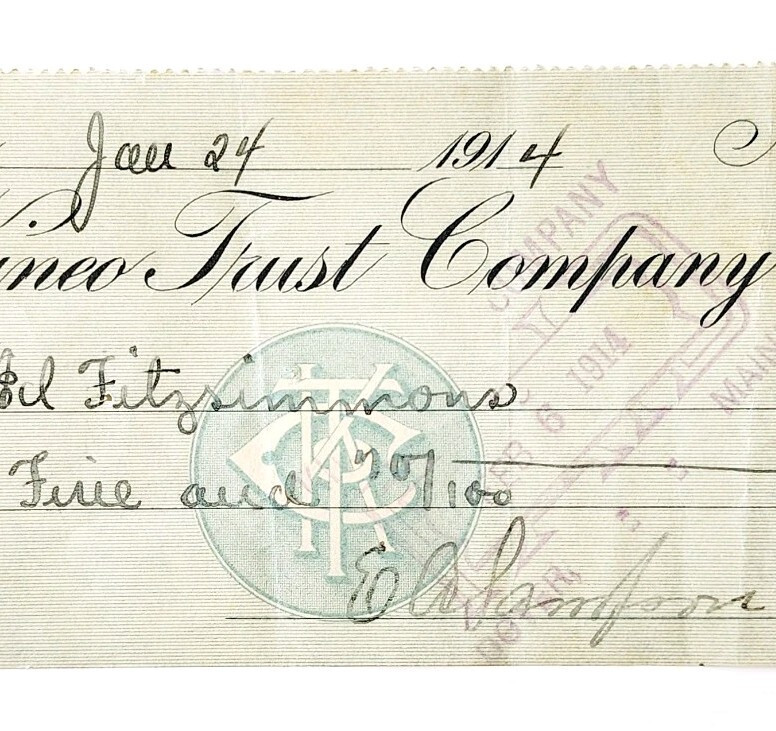 Jan 24 1914
ineo Trust Company
Ed Fitzsimmons
Five and 70/100
E A Sampson
COMPANY
PAID
MAR 6 1914
MAIN
DOVER,
KTC